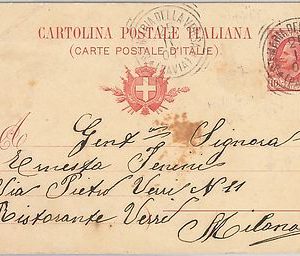 CARTOLINA POSTALE ITALIANA
(CARTE POSTALE D'ITALIE)
S. MARIA DELLA
(PAVIA)
A Gent ma Signora
Ernesta
Via Pietro Verri N 11
Ristorante Verri
Milano